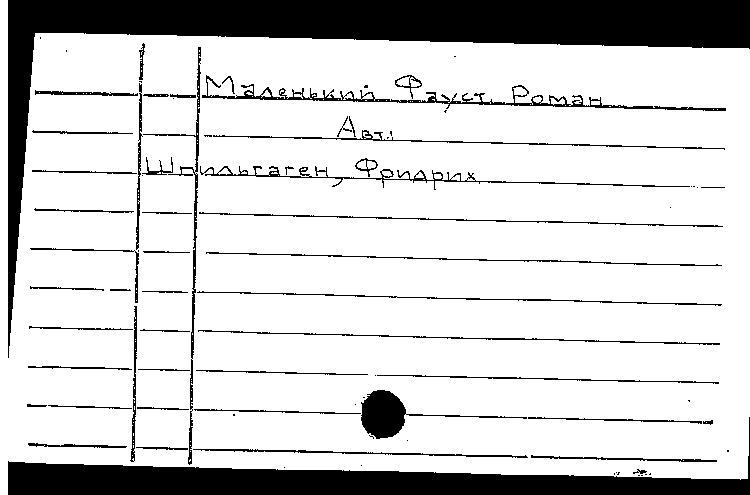 Маленький Фауст. Роман
Авт.:
Шпильгаген, Фридрих